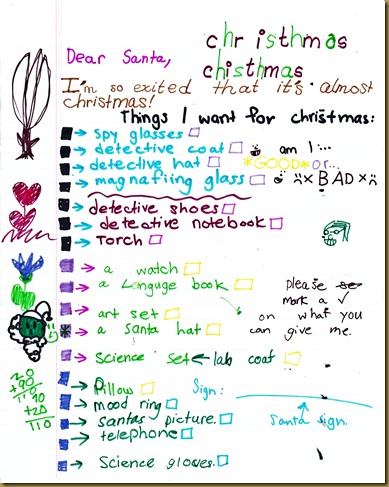 chr isthmas
Dear Santa,
chisthmas
I'm so exited that it's almost
christmas!
Things I want for christmas:
spy glasses
detective coat
am I...
detective hat
*GOOD* or...
magnafiing glass
BAD
detective shoes
detective notebook
Torch
a watch
a Languge book
please
mark a ✓
art set
on what you
a santa hat
can give me.
Science set ← lab coat
Pillow
Sign:
mood ring
santas picture.
santa sign.
telephone
Science gloves.
20
+90
110
90
+20
110